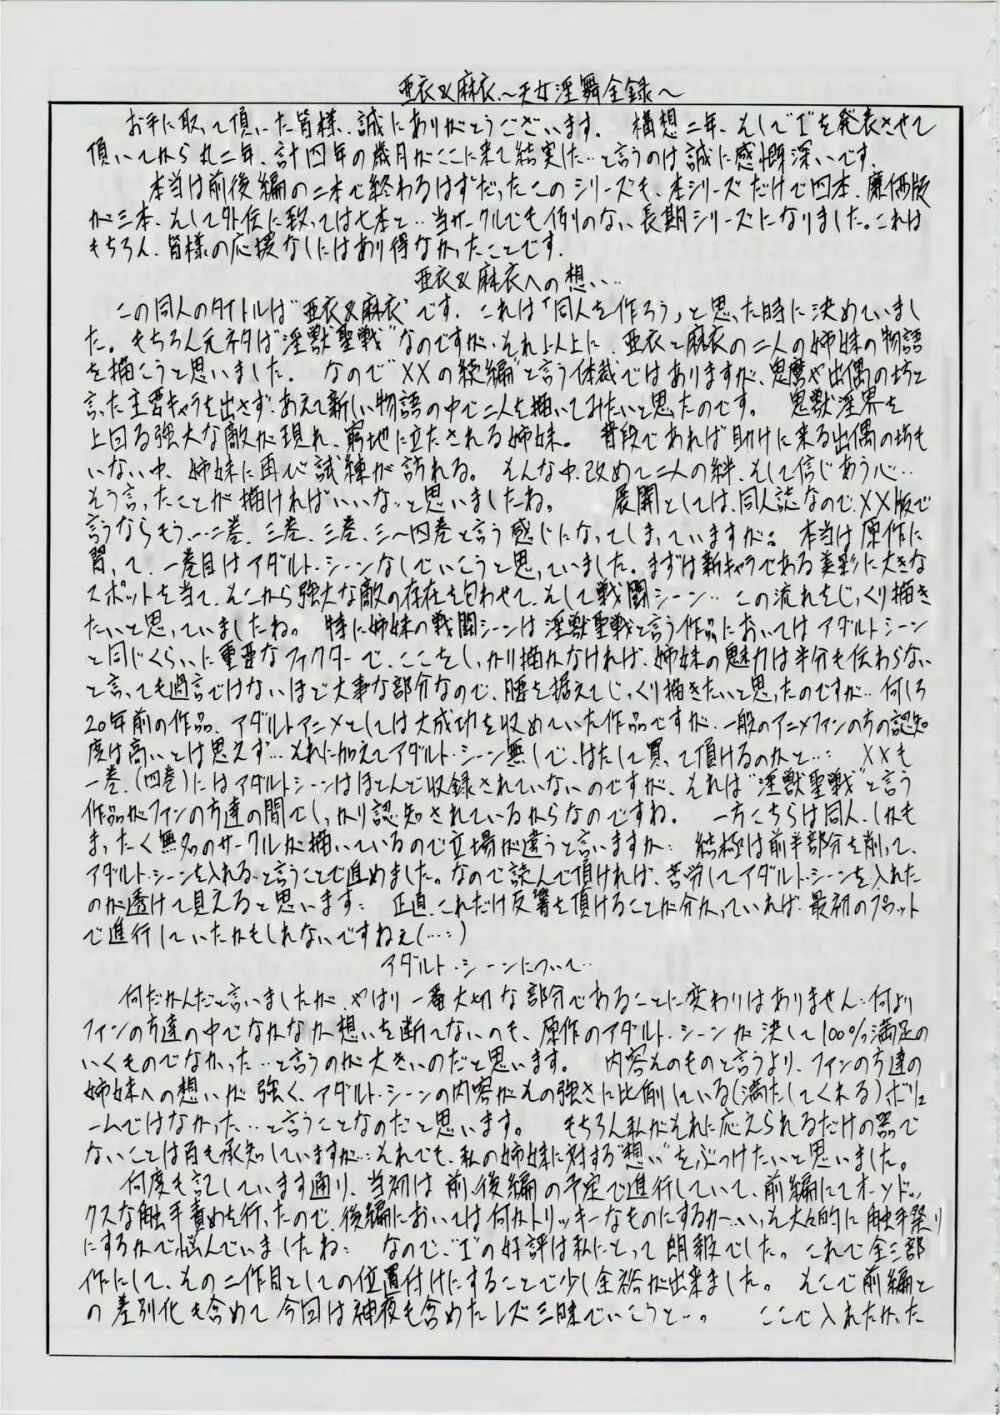 亜衣&麻衣〜天女淫舞全録〜
お手に取って頂いた皆様、誠にありがとうございます。 構想二年、そして"Ⅰ"を発表させて
頂いてから丸二年、計四年の歳月がここに来て結実した…と言うのは誠に感慨深いです。
本当は前後編の二本で終わるはずだったこのシリーズも、本シリーズだけで四本、廉価版
が三本、そして外伝に致っては七本と…当サークルでも例のない長期シリーズになりました。これは
もちろん、皆様の応援なしにはあり得なかったことです。
亜衣&麻衣への想い…
この同人のタイトルは"亜衣&麻衣"です。これは「同人を作ろう」と思った時に決めていまし
た。もちろん元ネタは"淫獣聖戦"なのですが、それ以上に、亜衣と麻衣の二人の姉妹の物語
を描こうと思いました。 なので"XXの続編"と言う体裁ではありますが、鬼麿や出偶の坊と
言った主要キャラを出さず、あえて新しい物語の中で二人を描いてみたいと思ったのです。 鬼獣淫界を
上回る強大な敵が現れ、窮地に立たされる姉妹。 普段であれば助けに来る出偶の坊も
いない中、姉妹に再び試練が訪れる。 そんな中、改めて二人の絆、そして信じあう心…
そう言ったことが描ければいいな…と思いましたね。 展開としては、同人誌なので、XX版で
言うならもう…二巻、三巻、三巻、三〜四巻と言う感じになってしまっていますが。 本当は原作に
習って、一巻目はアダルト・シーンなしでいこうと思っていました。まずは新キャラである美彩に大きな
スポットを当て、そこから強大な敵の存在を匂わせて、そして戦闘シーン… この流れをじっくり描き
たいと思っていましたね。 特に姉妹の戦闘シーンは淫獣聖戦と言う作品においてはアダルトシーン
と同じくらいに重要なファクターで、ここをしっかり描かなければ、姉妹の魅力は半分も伝わらない
と言っても過言ではないほど大事な部分なので、腰を据えてじっくり描きたいと思ったのですが…何しろ
20年前の作品、アダルトアニメとしては大成功を収めていた作品ですが、一般のアニメファンの方の認知
度は高いとは思えず…それに加えてアダルト・シーン無しで、はたして買って頂けるのかと…: XXも
一巻、(四巻)にはアダルトシーンはほとんど収録されていないのですが、それは"淫獣聖戦"と言う
作品がファンの方達の間でしっかり認知されているからなのですね。 一方こちらは同人、しかも
まったく無名のサークルが描いているので立場が違うと言いますか… 結極は前半部分を削って、
アダルト・シーンを入れる…と言うことで進めました。なので読んで頂ければ、苦労してアダルト・シーンを入れた
のが透けて見えると思います: 正直、これだけ反響を頂けることが分かっていれば、最初のプロット
で進行していたかもしれないですねぇ(…:)
アダルト・シーンについて…
何だかんだと言いましたが、やはり一番大切な部分であることに変わりはありません:何より
ファンの方達の中でなかなか想いを断てないのも、原作のアダルト・シーンが決して100%満足の
いくものでなかった…と言うのが大きいのだと思います。 内容そのものと言うより、ファンの方達の
姉妹への想いが強く、アダルト・シーンの内容がその強さに比例している(満たしてくれる)ボリュ
ームではなかった…と言うことなのだと思います。 もちろん私がそれに応えられるだけの器で
ないことは百も承知していますが…:それでも、私の姉妹に対する"想い"をぶつけたいと思いました。
何度も記しています通り、当初は前、後編の予定で進行していて、前編にてオーソドッ
クスな触手責めを行ったので、後編においては何かトリッキーなものにするか…いっそ大々的に触手祭り
にするかで悩んでいましたね: なので、"Ⅰ"の好評は私にとって朗報でした。これで全三部
作にして、その二作目としての位置付けにすることで少し余裕が出来ました。 そこで前編と
の差別化も含めて今回は神夜も含めたレズ三昧でいこうと…。 ここで入れたかった